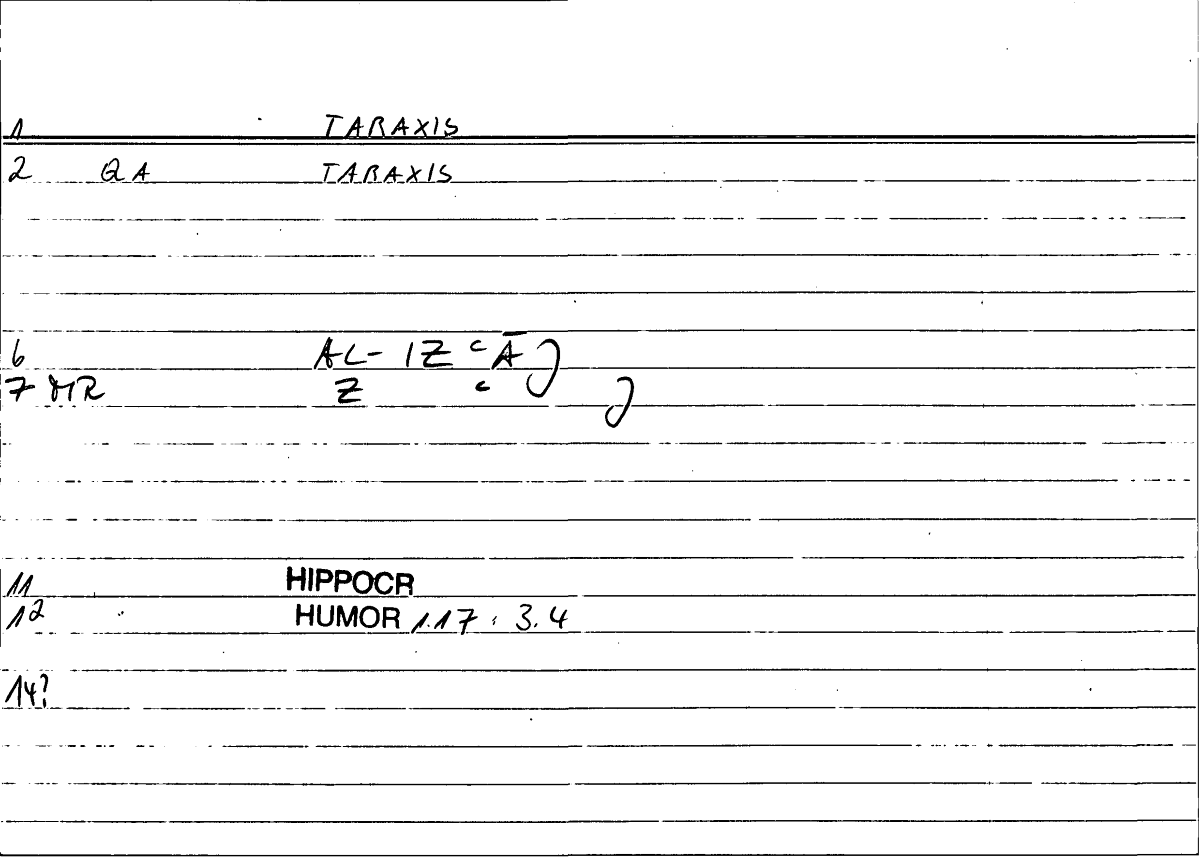 1 TARAXIS
2 QA TARAXIS
6 AL-IZ ʿĀJ
7 MR Z ʿ J
11 HIPPOCR
12 HUMOR 1.17 : 3.4
14?